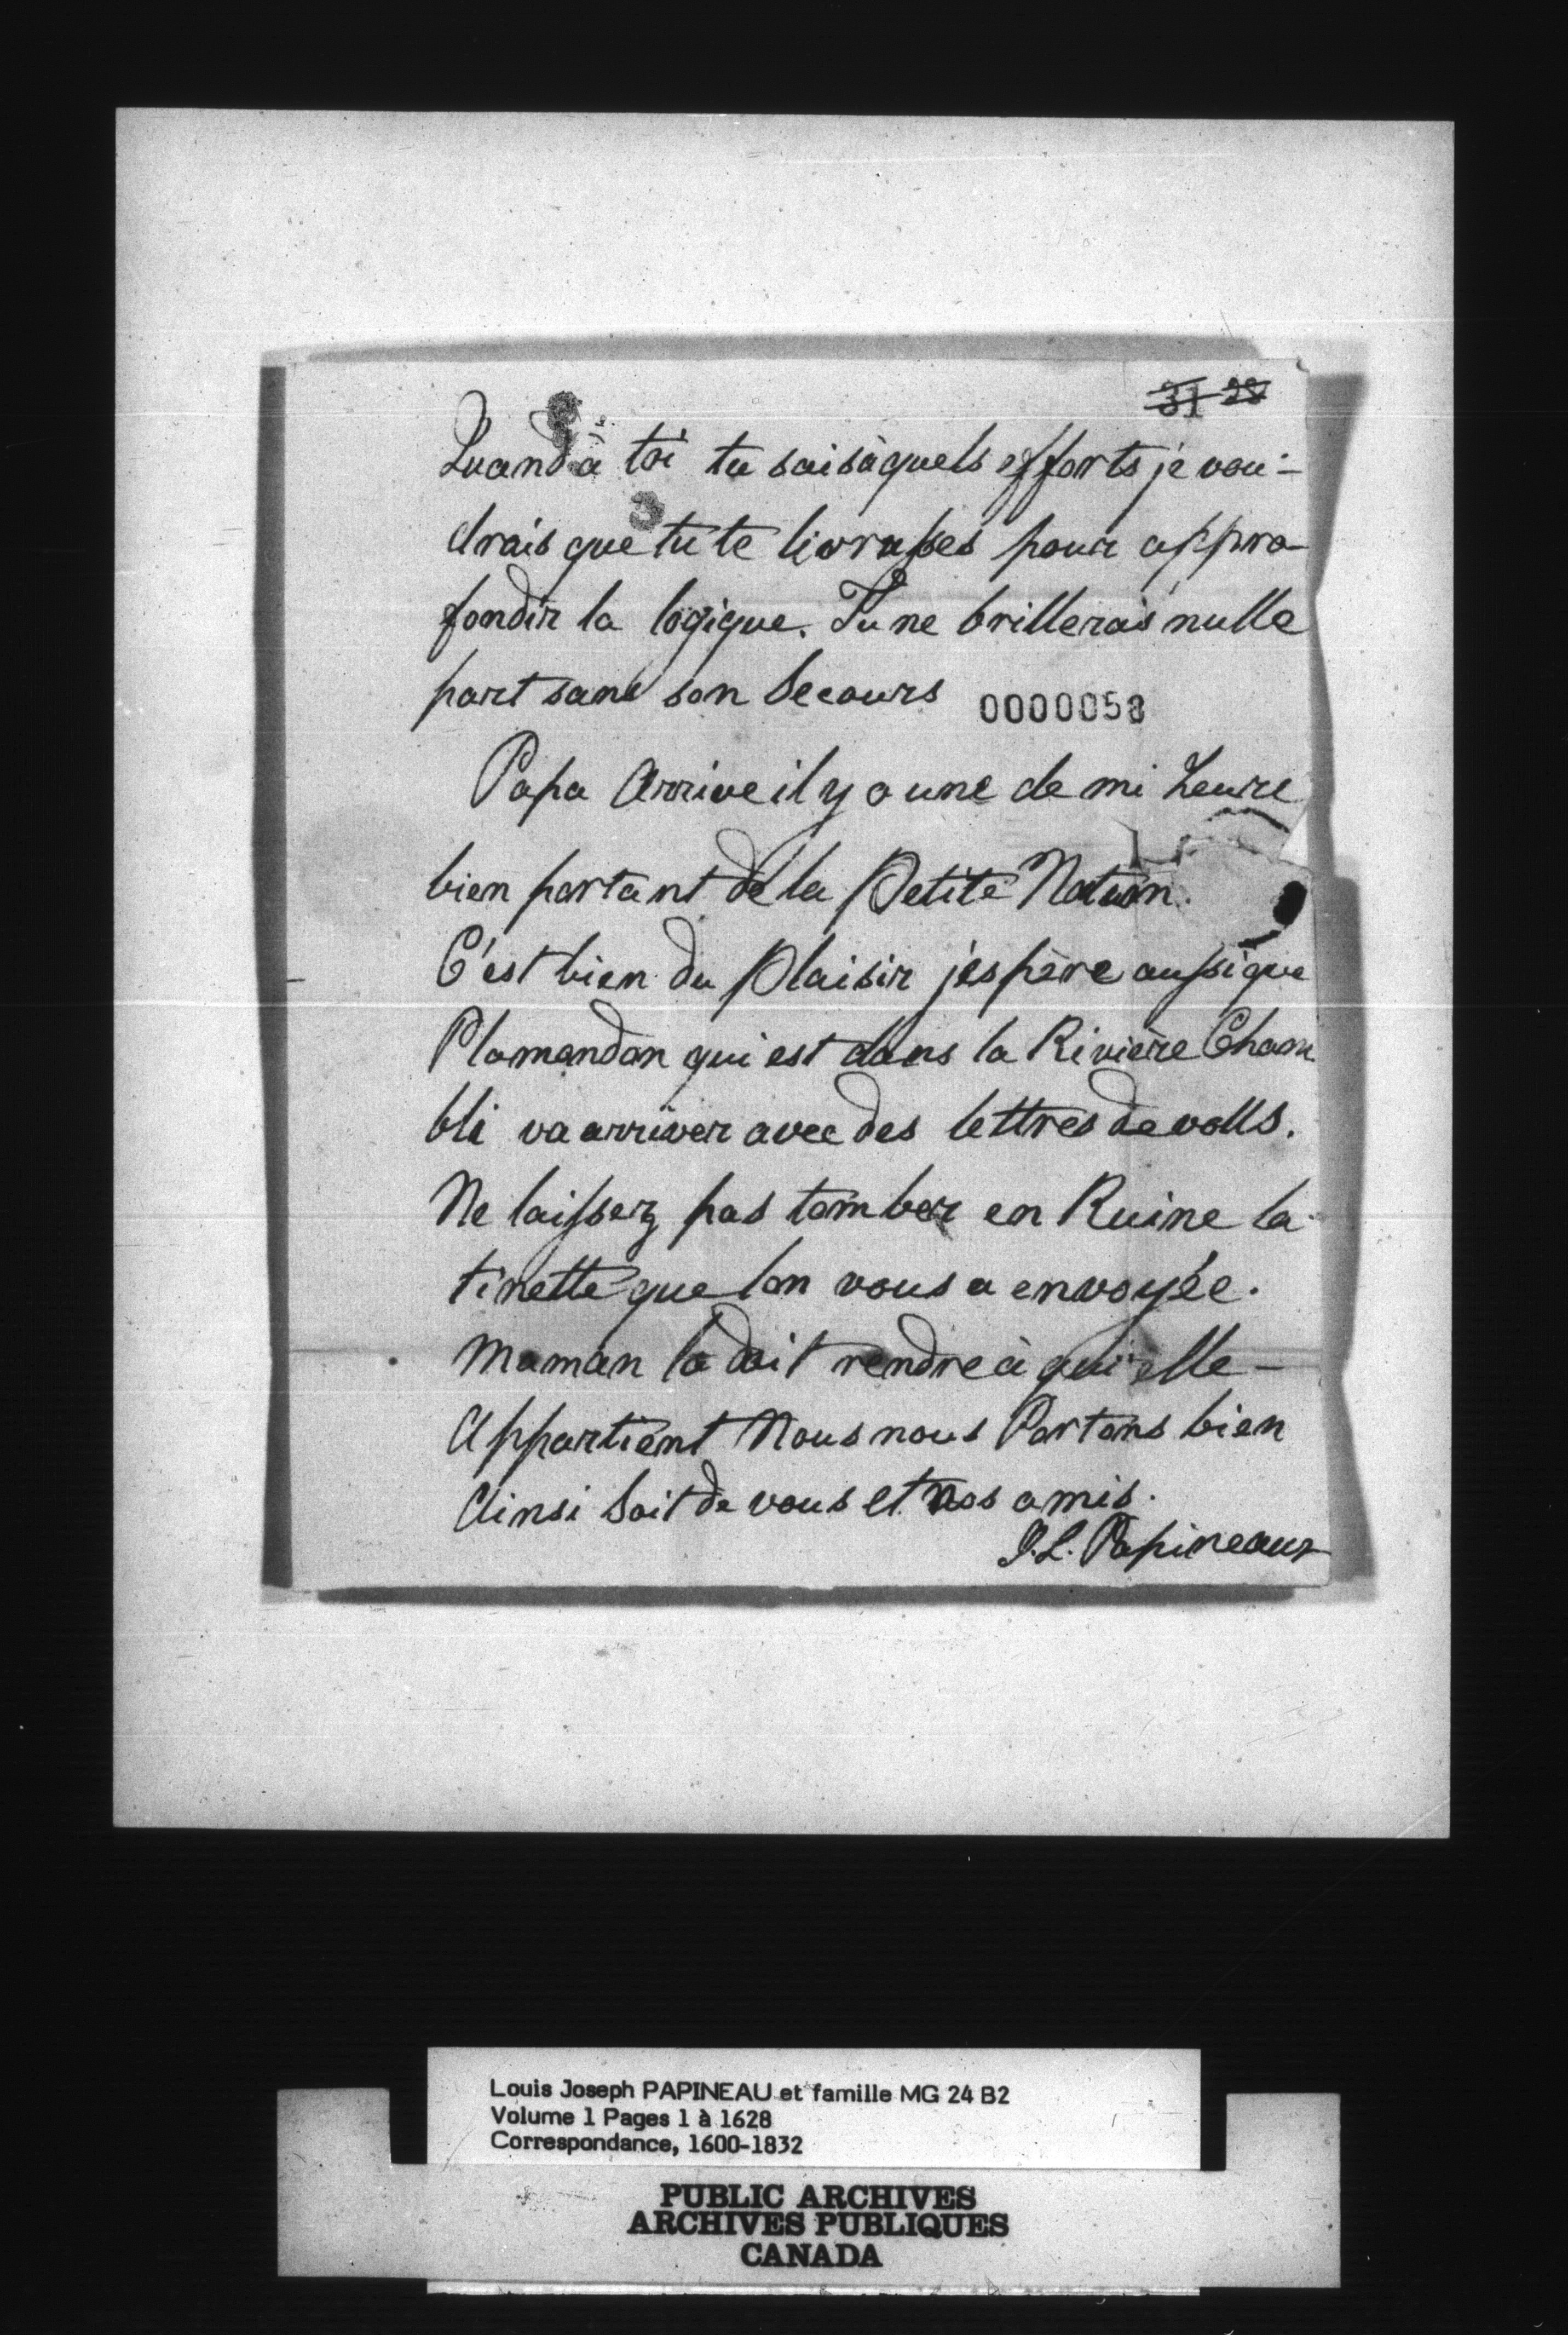 31 28
Quand à toi tu sais à quels efforts je vou-
drais que tu te livrasses pour appro-
fondir la logique. Tu ne brillerais nulle
part sans son Secours
0000058
Papa Arrive il y a une de mi heure
bien portant de la Petite Nation.
C'est bien du Plaisir j'espère aussi que
Plamondon qui est dans la Rivière Cham
bli va arriver avec des lettres de vous.
Ne laissez pas tomber en Ruine la
tinette que lon vous a envoyée.
Maman la doit rendre à qui elle -
Appartient Nous nous Portons bien
Ainsi Soit de vous et nos amis.
J.L. Papineau
Louis Joseph PAPINEAU et famille MG 24 B2
Volume 1 Pages 1 à 1628
Correspondance, 1600-1832
PUBLIC ARCHIVES
ARCHIVES PUBLIQUES
CANADA